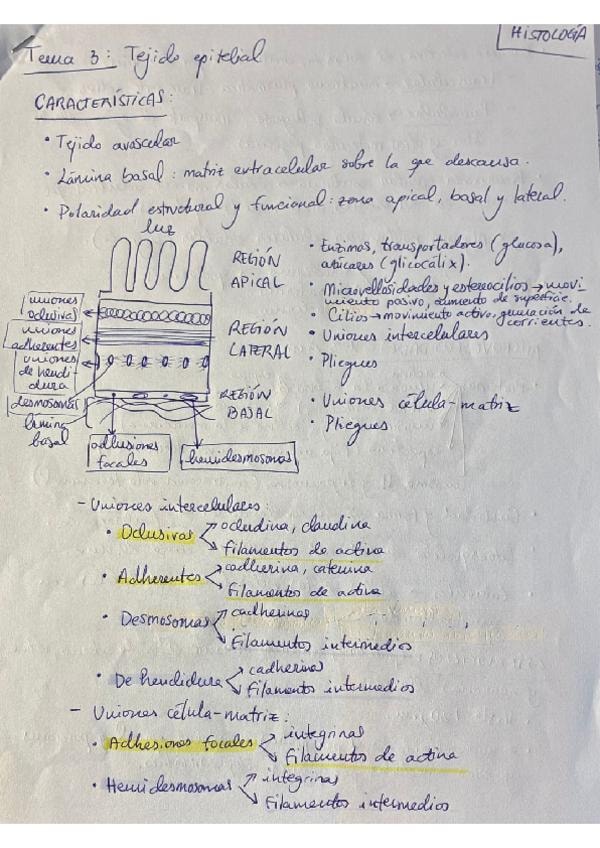 HISTOLOGÍA
Tema 3: Tejido epitelial
CARACTERÍSTICAS:
• Tejido avascular
• Lámina basal: matriz extracelular sobre la que descansa.
• Polaridad estructural y funcional: zona apical, basal y lateral.
luz
REGIÓN
APICAL
• Enzimas, transportadores (glucosa),
azúcares (glicocálix).
• Microvellosidades y estereocilios → movi-
miento pasivo, aumento de superficie.
• Cilios → movimiento activo, generación de
corrientes.
REGIÓN
LATERAL
• Uniones intercelulares
• Pliegues
REGIÓN
BASAL
• Uniones célula-matriz
• Pliegues
uniones
oclusivas
uniones
adherentes
uniones
de hendi-
dura
desmosomas
lámina
basal
adhesiones
focales
hemidesmosomas
- Uniones intercelulares:
• Oclusivas → ocludina, claudina
→ filamentos de actina
• Adherentes → cadherina, catenina
→ filamentos de actina
• Desmosomas → cadherinas
→ filamentos intermedios
• De hendidura → cadherinas
→ filamentos intermedios
- Uniones célula-matriz:
• Adhesiones focales → integrinas
→ filamentos de actina
• Hemidesmosomas → integrinas
→ filamentos intermedios